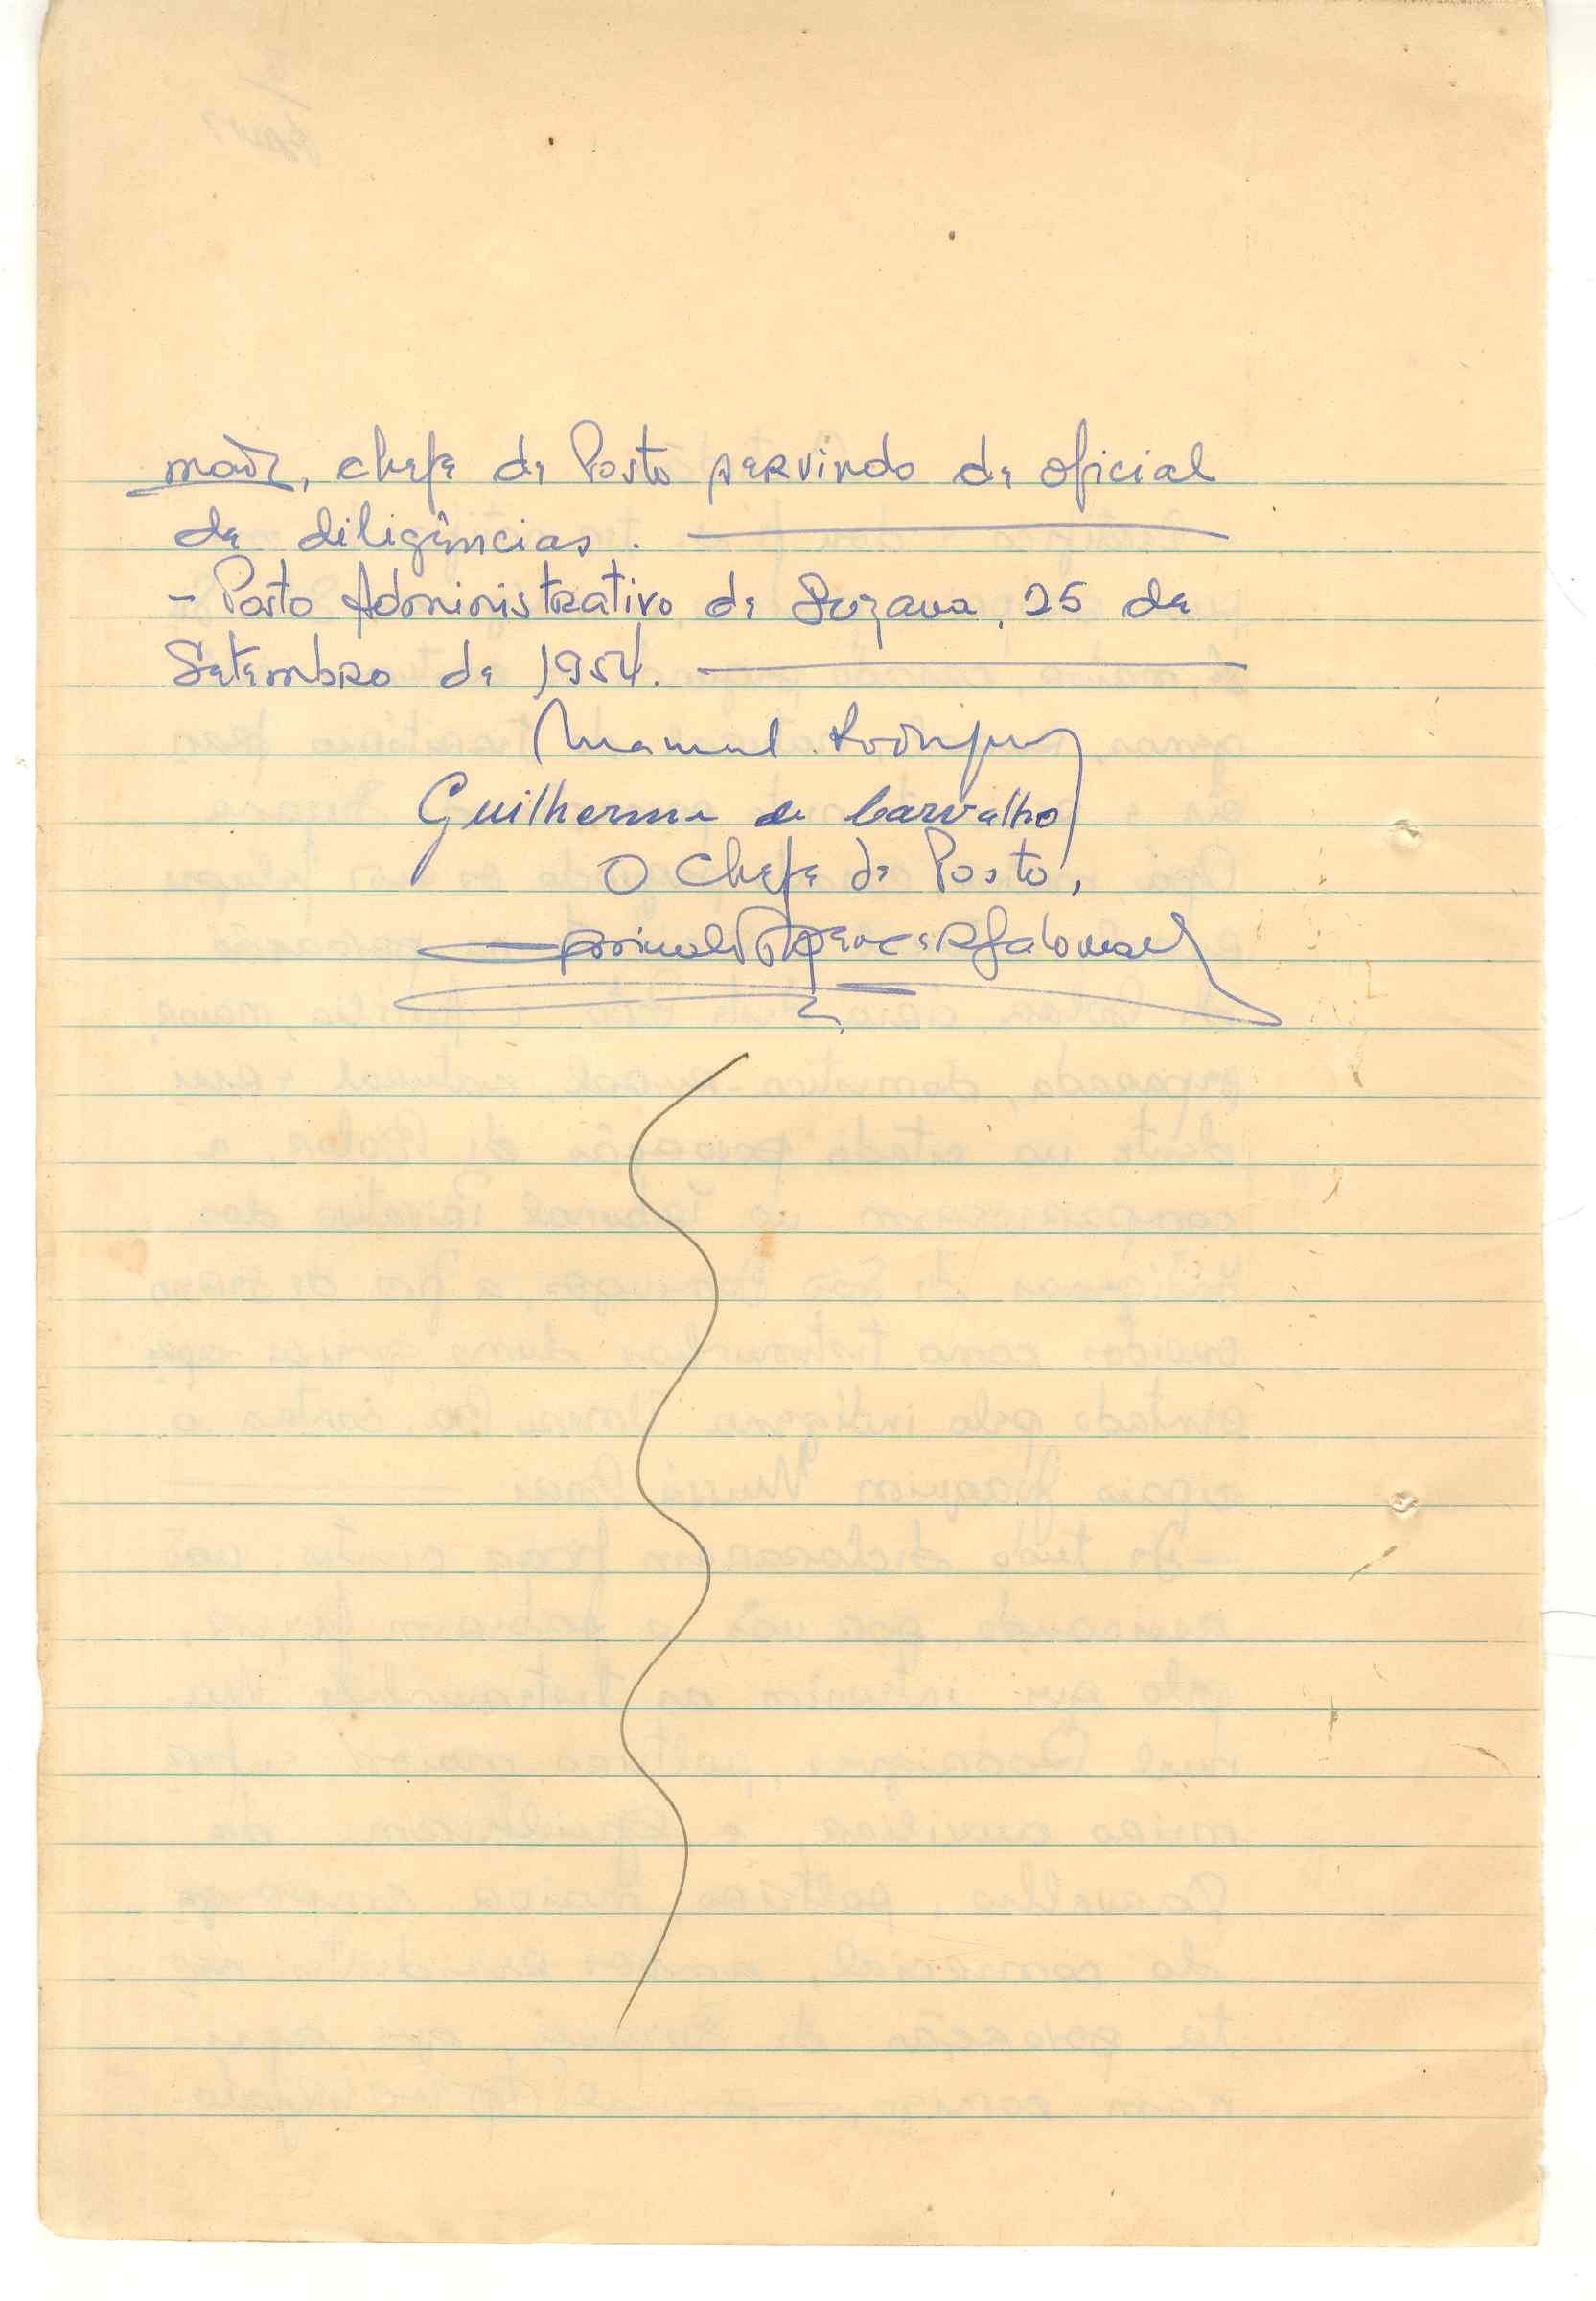 mão, chefe de Posto servindo de oficial
de diligências.
- Posto Administrativo de Suzana, 25 de
Setembro de 1954.
Manuel Rodrigues
Guilherme de Carvalho
O Chefe de Posto,